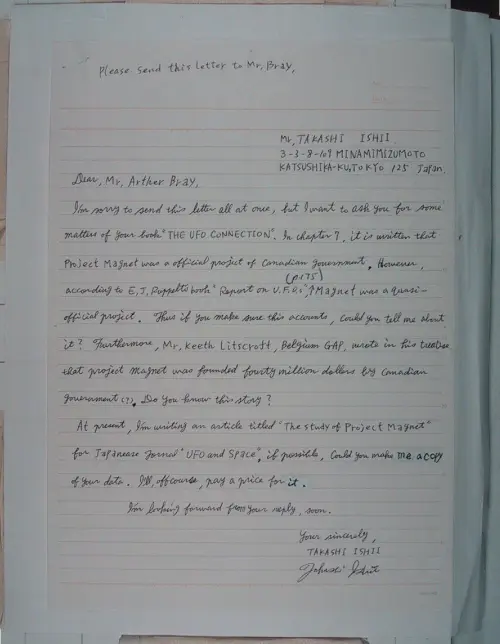 Please send this letter to Mr, Bray,
Mr, TAKASHI ISHII
3-3-8-109 MINAMIMIZUMOTO
KATSUSHIKA-KU, TOKYO 125 Japan.
Dear, Mr, Arther Bray,
I'm sorry to send this letter all at once, but I want to ask you for some
matters of your book "THE UFO CONNECTION". In chapter 7, it is written that
Project Magnet was a official project of Canadian government. However,
(p.175)
according to E, J, Ruppelt's book "Report on U.F.O.s", Magnet was a quasi-
official project. Thus if you make sure this accounts, could you tell me about
it? Furthermore, Mr, Keeth Litscroft, Belgium GAP, wrote in his treatise
that project magnet was founded fourty million dollers by Canadian
government (?). Do you know this story?
At present, I'm writing an article titled "The study of Project Magnet"
for Japanease Jornel "UFO and Space", if possible, Could you make me a copy
of your data. I'll, offcourse, pay a price for it.
I'm looking forward from your reply, soon.
Your sincerely,
TAKASHI ISHII
Takashi Ishii